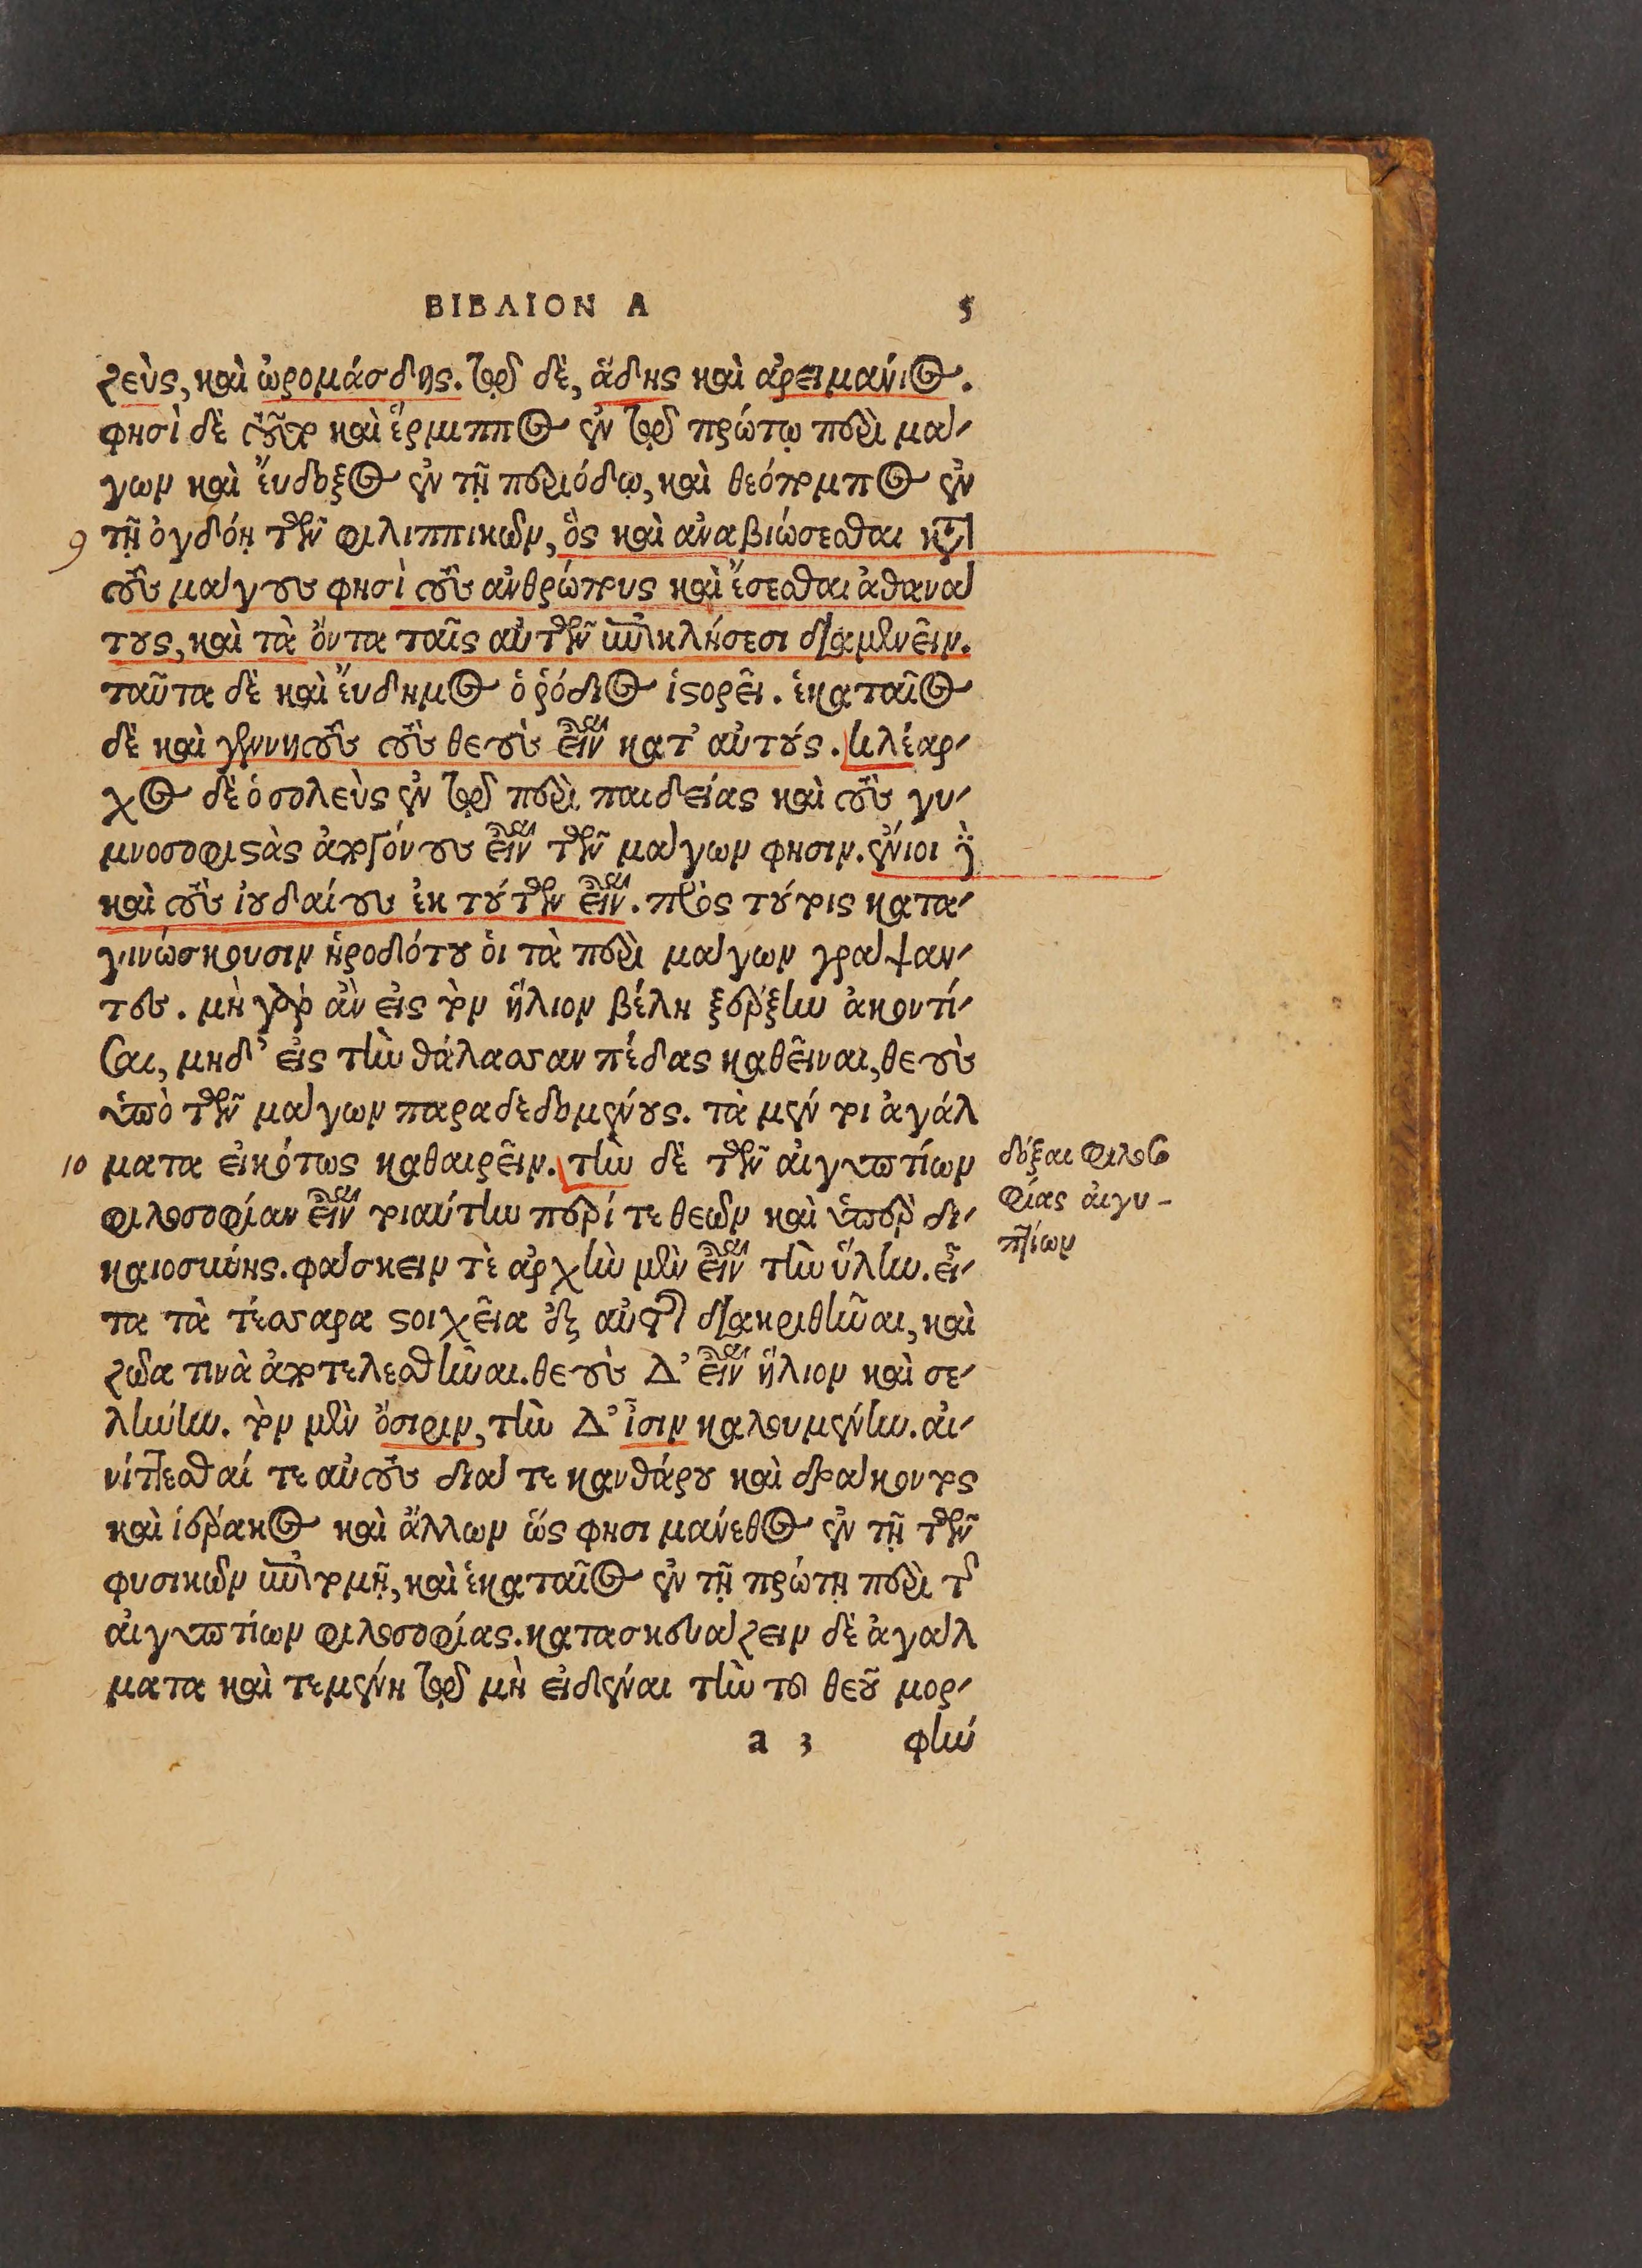 ΒΙΒΛΙΟΝ Α 5
ζεὺς, καὶ ὠρομάσδης. τῷ δὲ, ἅδης καὶ ἀρειμάνιος.
φησὶ δὲ τοῦτο καὶ ἕρμιππος ἐν τῷ πρώτῳ περὶ μά-
γων καὶ ἔυδοξος ἐν τῇ περιόδῳ, καὶ θεόπομπος ἐν
9 τῇ ὀγδόῃ τῶν φιλιππικῶν, ὃς καὶ ἀναβιώσεσθαι κατὰ
τοὺς μάγους φησὶ τοὺς ἀνθρώπους καὶ ἔσεσθαι ἀθανά
τους, καὶ τὰ ὄντα ταῖς αὐτῶν ἐπικλήσεσι διαμένειν.
ταῦτα δὲ καὶ ἔυδημος ὁ ῥόδιος ἱστορεῖ. ἑκαταῖος
δὲ καὶ γεννητοὺς τοὺς θεοὺς εἶναι κατ' αὐτούς. κλέαρ-
χος δὲ ὁ σολεὺς ἐν τῷ περὶ παιδείας καὶ τοὺς γυ-
μνοσοφιστὰς ἀπογόνους εἶναι τῶν μάγων φησιν. ἔνιοι δὲ
καὶ τοὺς ἰουδαίους ἐκ τούτων εἶναι. πρὸς τούτοις κατα-
γινώσκουσιν ἡροδότου ὁι τὰ περὶ μάγων γράψαν-
τες. μὴ γὰρ ἂν εἰς τὸν ἥλιον βέλη ξέρξην ἀκοντί-
σαι, μηδ' εἰς τὴν θάλασσαν πέδας καθεῖναι, θεοὺς
ὑπὸ τῶν μάγων παραδεδομένους. τὰ μέν τοι ἀγάλ
10 ματα εἰκότως καθαιρεῖν. τὴν δὲ τῶν αἰγυπτίων
φιλοσοφίαν εἶναι τοιαύτην περί τε θεῶν καὶ ὑπὲρ δι-
καιοσύνης. φάσκειν τὲ ἀρχὴν μὲν εἶναι τὴν ὕλην. εἶ-
τα τὰ τέσσαρα στοιχεῖα ἐξ αὐτῆς διακριθῆναι, καὶ
ζῶα τινὰ ἀποτελεσθῆναι. θεοὺς Δ' εἶναι ἥλιον καὶ σε-
λήνην. τὸν μὲν ὄσιριν, τὴν Δ' ἶσιν καλουμένην. αἰ-
νίττεσθαί τε αὐτοὺς διά τε κανθάρου καὶ δράκοντος
καὶ ἱέρακος καὶ ἄλλων ὥς φησι μανέθος ἐν τῇ τῶν
φυσικῶν ἐπιτομῇ, καὶ ἑκαταῖος ἐν τῇ πρώτῃ περὶ τῆς
αἰγυπτίων φιλοσοφίας. κατασκευάζειν δὲ ἀγάλ
ματα καὶ τεμένη τῷ μὴ εἰδέναι τὴν τοῦ θεοῦ μορ-
a 3 φήν
δόξαι φιλοσο
φίας αἰγυ-
πτίων